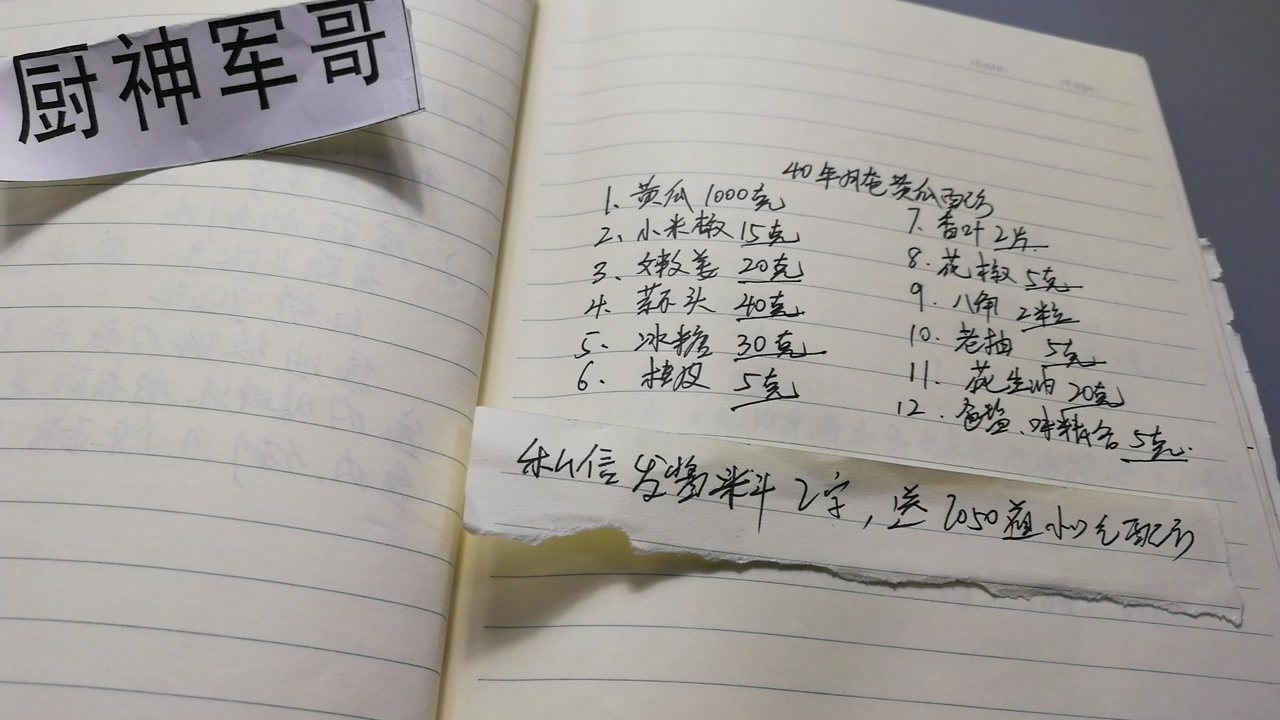 厨神军哥
40年腌黄瓜配方
1、黄瓜 1000克
2、小米椒 15克
3、嫩姜 20克
4、蒜头 40克
5、冰糖 30克
6、桂皮 5克
7、香叶 2片
8、花椒 5克
9、八角 2粒
10、老抽 5克
11、花生油 20克
12、食盐、味精各 5克
私信发酱料2字，送1050道小吃配方